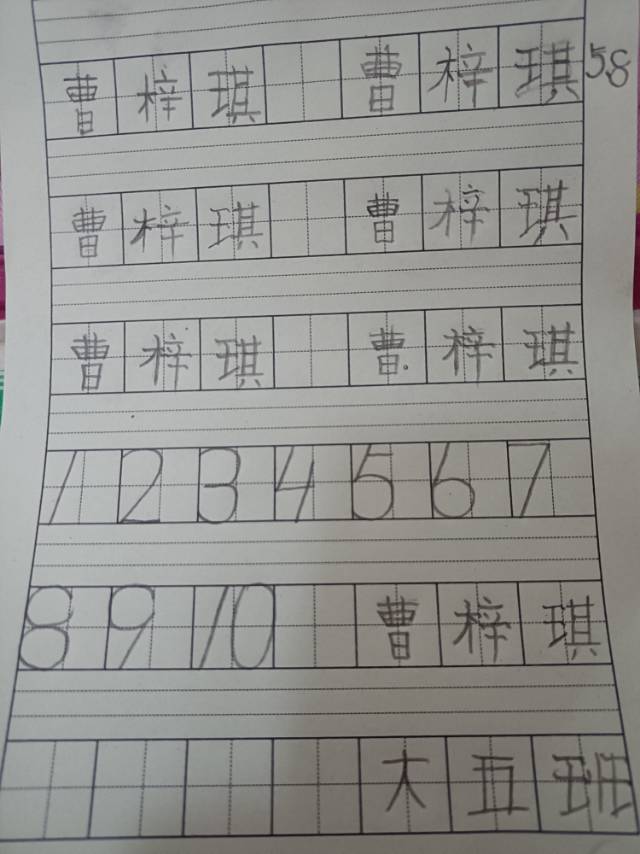 曹梓琪 曹梓琪 58
曹梓琪 曹梓琪
曹梓琪 曹梓琪
1234567
8910 曹梓琪
大五班